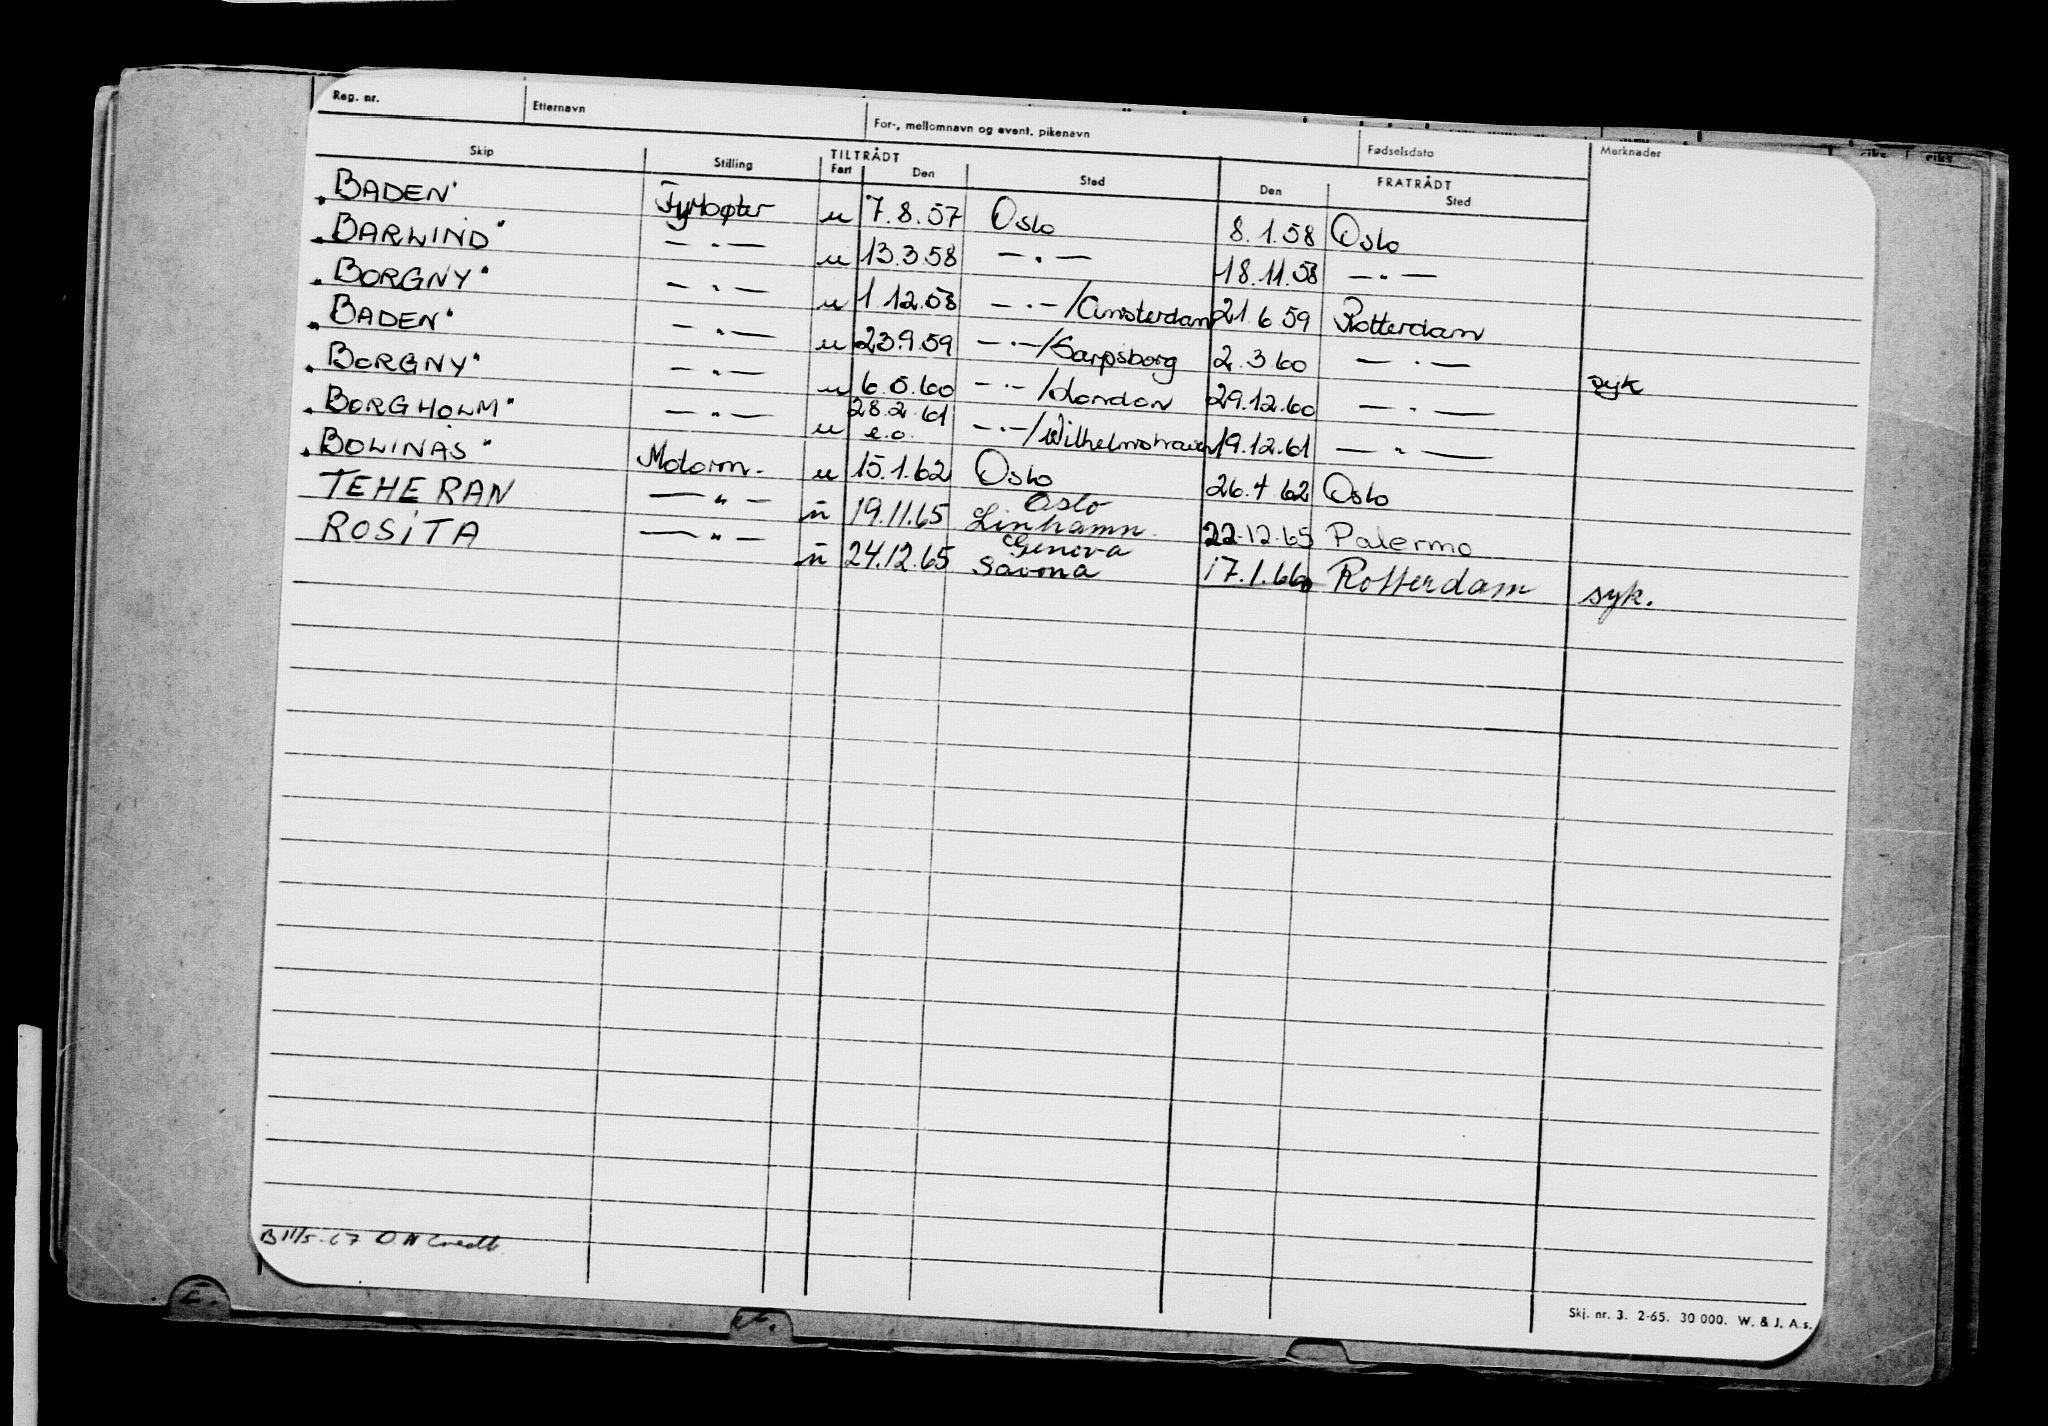 Reg. nr. Etternavn For-, mellomnavn og event. pikenavn Fødselsdato Merknader
Skip Stilling TILTRÅDT Fart Den Sted FRATRÅDT Den Sted
"BADEN" Fyrbøter u 7.8.57 Oslo 8.1.58 Oslo
"BARLIND" — " — u 13.3.58 — " — 18.11.58 — " —
"BORGNY" — " — u 1.12.58 — " — /Amsterdam 21.6.59 Rotterdam
"BADEN" — " — u 23.9.59 — " — /Sarpsborg 2.3.60 — " —
"BORGNY" — " — u 6.5.60 — " — /London 29.12.60 — " — syk
"BORGHOLM" — " — u 28.2.61 e.o. — " — /Wilhelmshaven 19.12.61 — " —
"BOLINAS" Motorm. u 15.1.62 Oslo 26.4.62 Oslo
TEHERAN — " — u 19.11.65 Oslo Linhamn 22.12.65 Palermo
ROSITA — " — u 24.12.65 Genova Savona 17.1.66 Rotterdam syk.
B 11/5-67
Skj. nr. 3. 2-65. 30 000. W. & J. A.s.